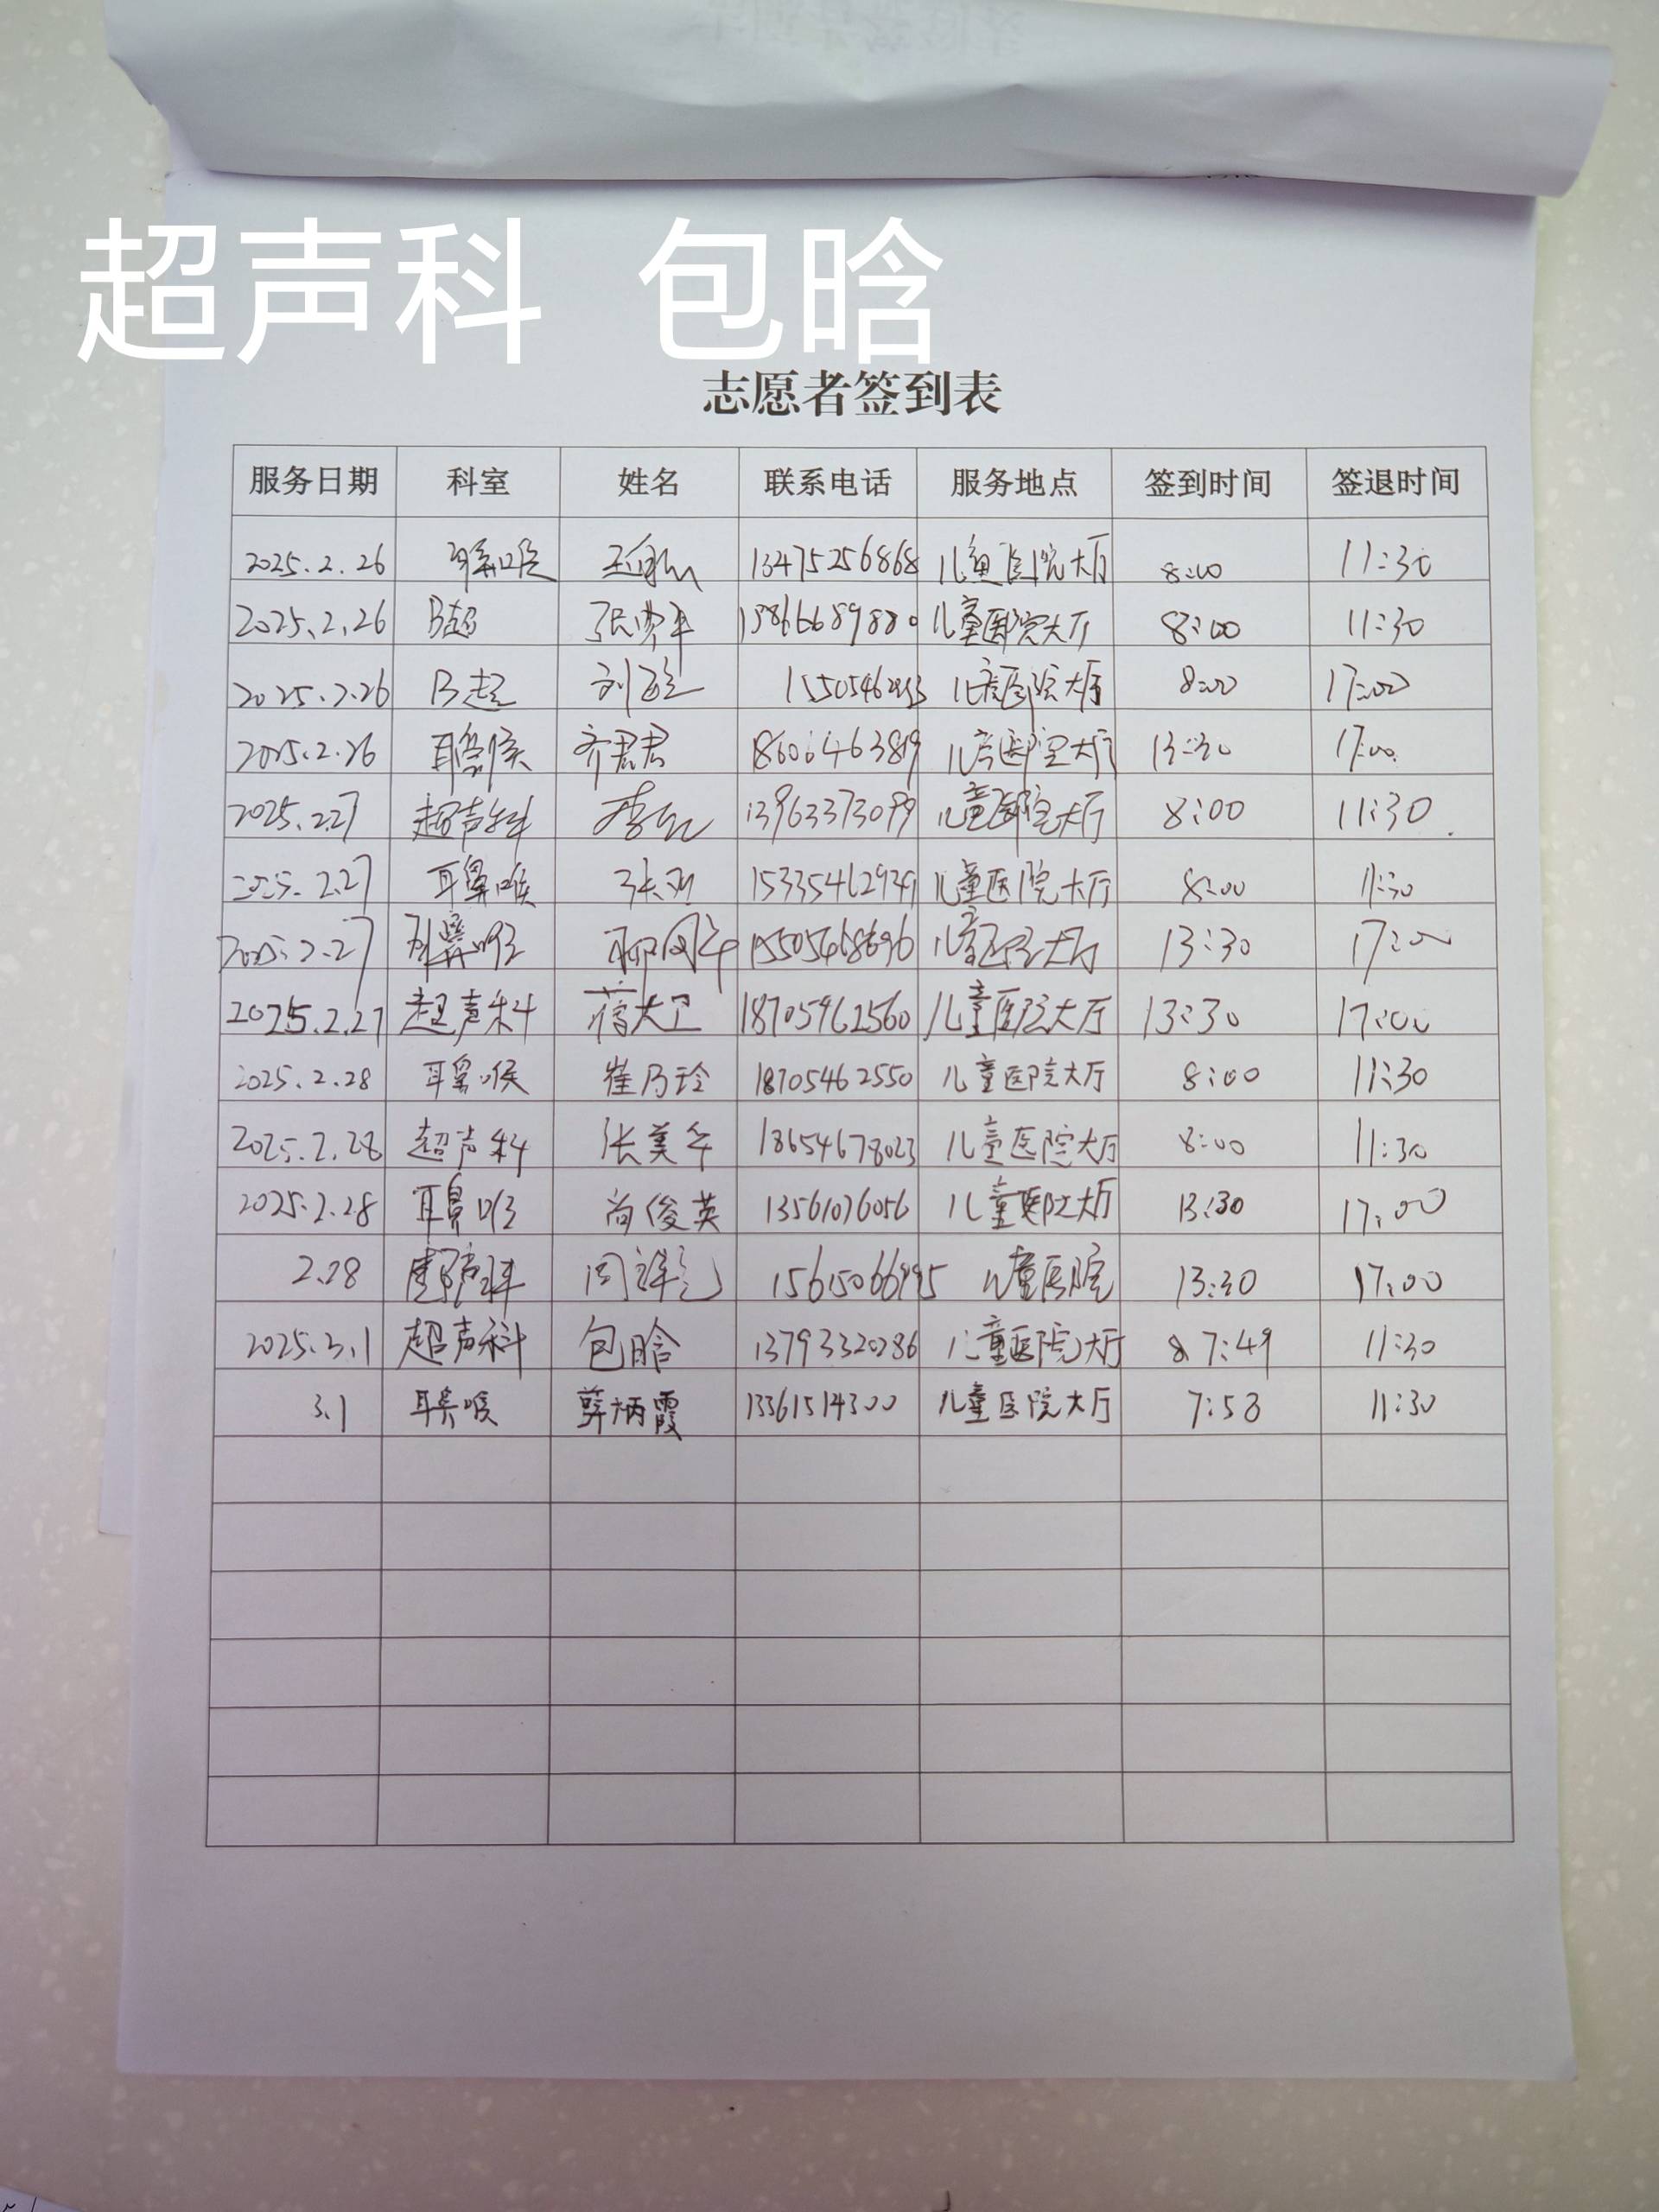 超声科 包晗
志愿者签到表
服务日期 科室 姓名 联系电话 服务地点 签到时间 签退时间
2025.2.26 耳鼻喉 13475256868 儿童医院大厅 8:00 11:30
2025.2.26 B超 13866689880 儿童医院大厅 8:00 11:30
2025.2.26 B超 儿童医院大厅 8:00 17:00
2025.2.26 耳鼻喉 齐君君 18606463819 儿童医院大厅 13:30 17:00
2025.2.27 超声科 13963373099 儿童医院大厅 8:00 11:30
2025.2.27 耳鼻喉 儿童医院大厅 8:00 11:30
2025.2.27 耳鼻喉 15505468696 儿童医院大厅 13:30 17:00
2025.2.27 超声科 蒋大卫 18705462560 儿童医院大厅 13:30 17:00
2025.2.28 耳鼻喉 崔乃玲 18705462550 儿童医院大厅 8:00 11:30
2025.2.28 超声科 张美华 18654678023 儿童医院大厅 8:00 11:30
2025.2.28 耳鼻喉 尚俊英 13561076056 儿童医院大厅 13:30 17:00
2.28 超声科 儿童医院 13:30 17:00
2025.3.1 超声科 包晗 13793320286 儿童医院大厅 7:49 11:30
3.1 耳鼻喉 薛炳霞 13361514300 儿童医院大厅 7:53 11:30